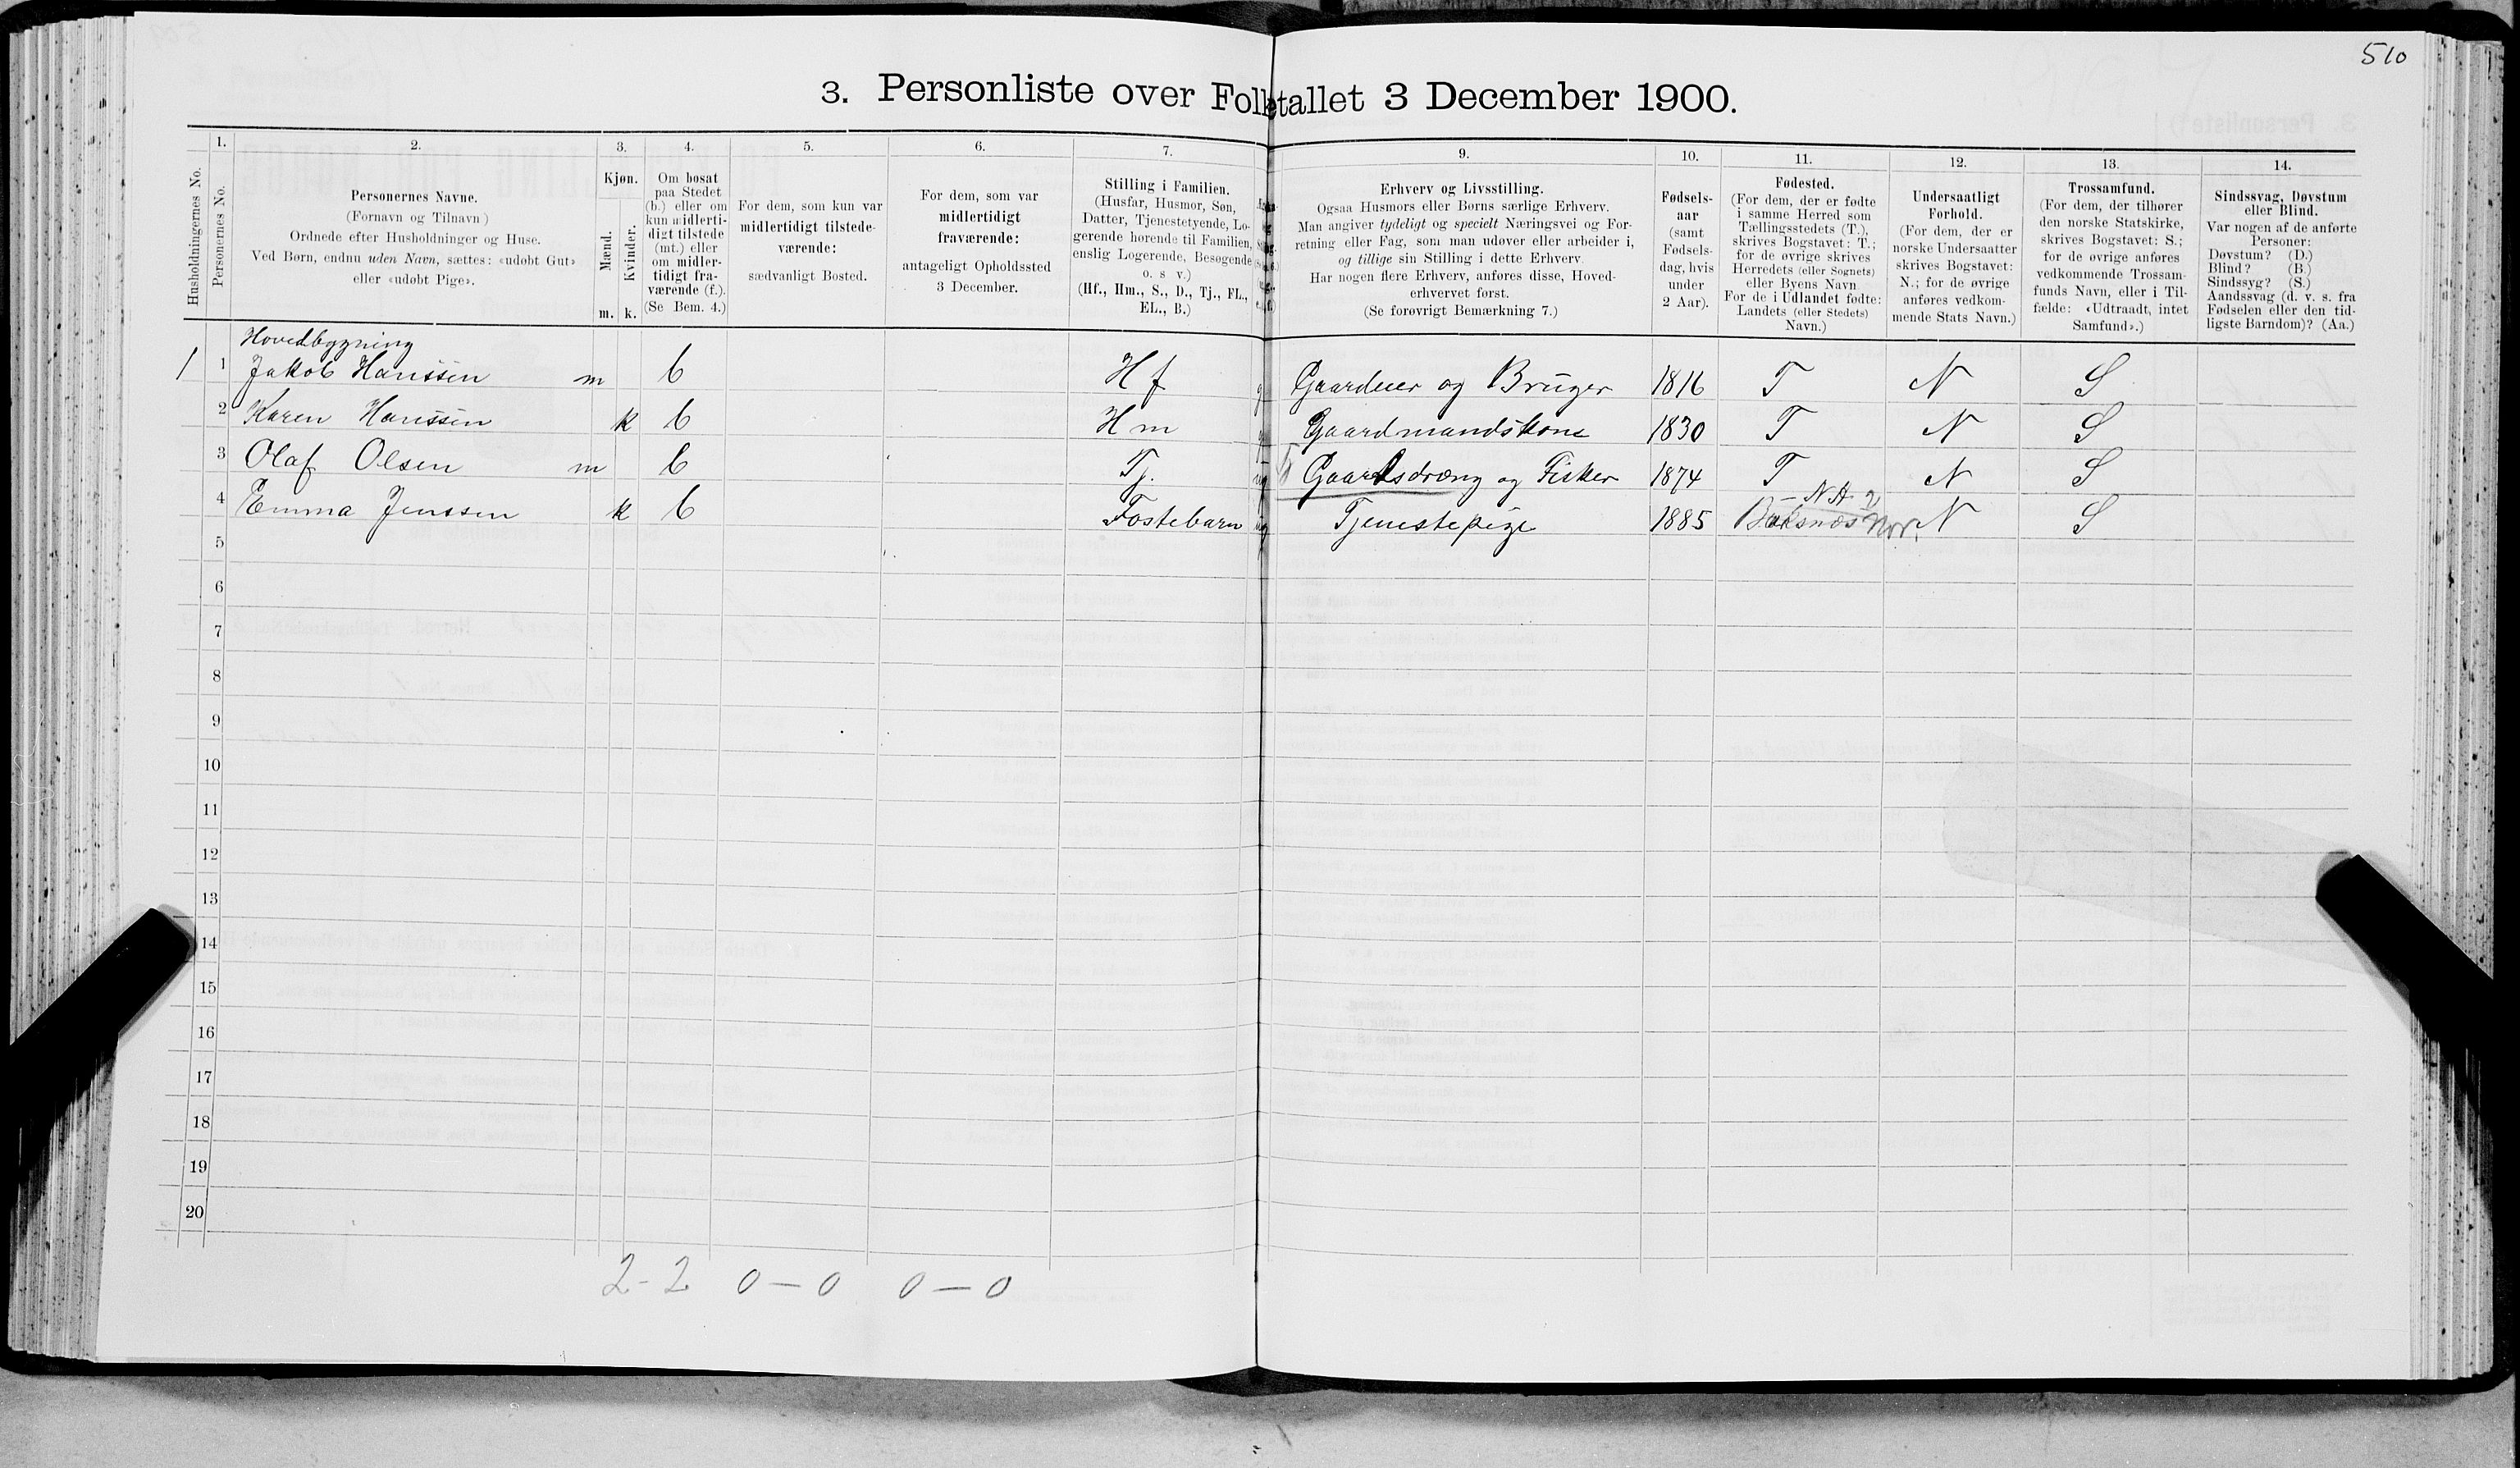 510
3. Personliste over Folketallet 3 December 1900.
1. 2. 3. 4. 5. 6. 7. 9. 10. 11. 12. 13. 14.
Husholdningernes No.
Personernes No.
Personernes Navne.
(Fornavn og Tilnavn)
Ordnede efter Husholdninger og Huse.
Ved Børn, endnu uden Navn, sættes: «udøbt Gut»
eller «udøbt Pige».
Kjøn.
Mænd.
Kvinder.
m. k.
Om bosat
paa Stedet
(b.) eller om
kun midlerti-
digt tilstede
(mt.) eller
om midler-
tidigt fra-
værende (f.).
(Se Bem. 4.)
For dem, som kun var
midlertidigt tilstede-
værende:
sædvanligt Bosted.
For dem, som var
midlertidigt
fraværende:
antageligt Opholdssted
3 December.
Stilling i Familien.
(Husfar, Husmor, Søn,
Datter, Tjenestetyende, Lo-
gerende hørende til Familien,
enslig Logerende, Besøgende
o. s v.)
(Hf., Hm., S., D., Tj., FL.,
EL., B.)
Erhverv og Livsstilling.
Ogsaa Husmors eller Børns særlige Erhverv.
Man angiver tydeligt og specielt Næringsvei og For-
retning eller Fag, som man udøver eller arbeider i,
og tillige sin Stilling i dette Erhverv.
Har nogen flere Erhverv, anføres disse, Hoved-
erhvervet først.
(Se forøvrigt Bemærkning 7.)
Fødsels-
aar
(samt
Fødsels-
dag, hvis
under
2 Aar).
Fødested.
(For dem, der er fødte
i samme Herred som
Tællingsstedets (T.),
skrives Bogstavet: T.;
for de øvrige skrives
Herredets (eller Sognets)
eller Byens Navn.
For de i Udlandet fødte:
Landets (eller Stedets)
Navn.)
Undersaatligt
Forhold.
(For dem, der er
norske Undersaatter
skrives Bogstavet:
N.; for de øvrige
anføres vedkom-
mende Stats Navn.)
Trossamfund.
(For dem, der tilhører
den norske Statskirke,
skrives Bogstavet: S.;
for de øvrige anføres
vedkommende Trossam-
funds Navn, eller i Til-
fælde: «Udtraadt, intet
Samfund».)
Sindssvag, Døvstum
eller Blind.
Var nogen af de anførte
Personer:
Døvstum? (D.)
Blind? (B.)
Sindssyg? (S.)
Aandssvag (d. v. s. fra
Fødselen eller den tid-
ligste Barndom)? (Aa.)
Hovedbygning
1 1 Jakob Hanssen m b Hf g Gaardeier og Bruger 1816 T N S
2 Karen Hanssen k b Hm g Gaardmandskone 1830 T N S
3 Olaf Olsen m b Tj. ug Gaardsdræng og Fisker 1874 T N S
4 Emma Jenssen k b Fostebarn ug Tjenestepige 1885 Buksnæs Nor. N S
5
6
7
8
9
10
11
12
13
14
15
16
17
18
19
20
2-2 0-0 0-0